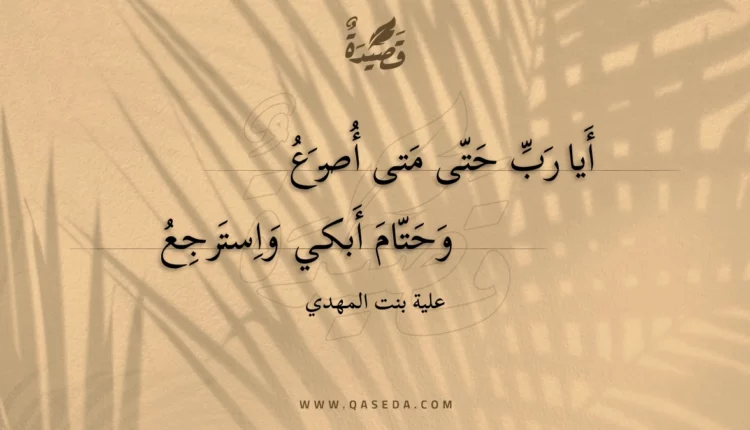 قَصِيْدَةٌ
أَيا رَبِّ حَتّى مَتى أُصرَعُ
وَحَتّامَ أَبكي وَاِستَرجِعُ
علية بنت المهدي
WWW.QASEDA.COM